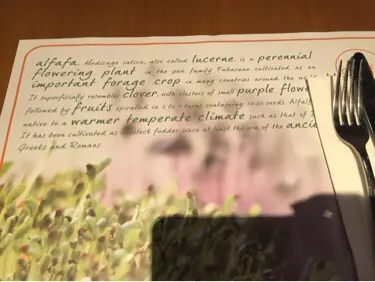 alfafa. Medicago sativa, also called lucerne, is a perennial
flowering plant in the pea family Fabaceae cultivated as an
important forage crop in many countries around the
It superficially resembles clover, with clusters of small purple
followed by fruits spiralled in 2 to 3 turns containing 10-20 seeds.
native to a warmer temperate climate such as that of
It has been cultivated as livestock fodder since at least the era of the
Greeks and Romans.